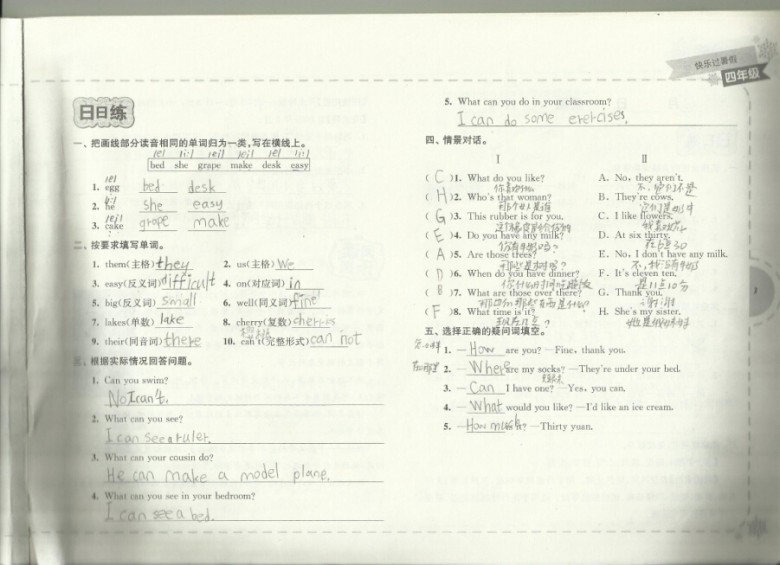 快乐过暑假
四年级
日日练
一、把画线部分读音相同的单词归为一类,写在横线上。
/e/ /i:/ /ei/ /ei/ /e/ /i:/
bed she grape make desk easy
/e/
1. egg bed desk
/i:/
2. he she easy
/ei/
3. cake grape make
二、按要求填写单词。
1. them(主格) they 2. us(主格) We
3. easy(反义词) difficult 4. on(对应词) in
5. big(反义词) small 6. well(同义词) fine
7. lakes(单数) lake 8. cherry(复数) cherries
9. their(同音词) there 10. can't(完整形式) can not
三、根据实际情况回答问题。
1. Can you swim?
No I can't.
2. What can you see?
I can see a ruler.
3. What can your cousin do?
He can make a model plane.
4. What can you see in your bedroom?
I can see a bed.
5. What can you do in your classroom?
I can do some erercises.
四、情景对话。
I II
( C )1. What do you like? A. No, they aren't.
你喜欢什么 不,它们不是
( H )2. Who's that woman? B. They're cows.
那个女人是谁 它们是奶牛
( G )3. This rubber is for you. C. I like flowers.
我喜欢花
( E )4. Do you have any milk? D. At six thirty.
你有牛奶吗? 在6点30
( A )5. Are those trees? E. No, I don't have any milk.
那些是树吗? 不,我没有牛奶
( D )6. When do you have dinner? F. It's eleven ten.
是11点10分
( B )7. What are those over there? G. Thank you.
谢谢
( F )8. What time is it? H. She's my sister.
现在几点? 她是我的妹妹
五、选择正确的疑问词填空。
1. —How are you? —Fine, thank you.
2. —Where are my socks? —They're under your bed.
3. —Can I have one? —Yes, you can.
4. —What would you like? —I'd like an ice cream.
5. —How much? —Thirty yuan.